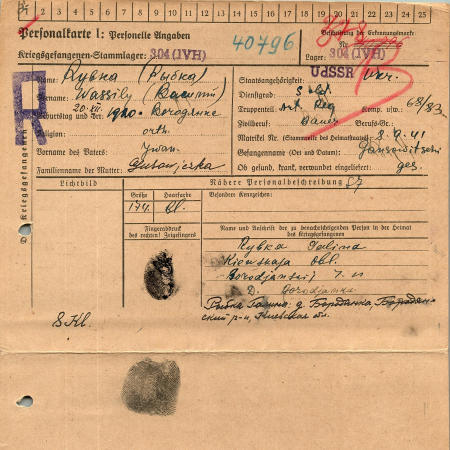 1 2 3 4 5 6 7 8 9 10 11 12 13 14 15 16 17 18 19 20 21 22 23 24 25
Personalkarte I: Personelle Angaben
Kriegsgefangenen-Stammlager: 304 (IVH)
40796
Beschriftung der Erkennungsmarke
Nr.
Lager: 304 (IVH)
UdSSR
Kriegsgefangenen
R
Name: Rybka (Рыбка)
Vorname: Wassily (Василий)
Geburtstag und -Ort: 20.VII. 1920. Borodjanke
Religion: orth.
Vorname des Vaters: Iwan
Familienname der Mutter:
Staatsangehörigkeit: Ukr.
Dienstgrad: Sold.
Truppenteil: Art. Reg Komp. usw.: 68/83
Zivilberuf: Bauer Berufs-Gr.:
Matrikel Nr. (Stammrolle des Heimatstaates): 8.9.41
Gefangennahme (Ort und Datum):
Ob gesund, krank, verwundet eingeliefert: ges.
Lichtbild
Nähere Personalbeschreibung
Größe
Haarfarbe
Besondere Kennzeichen:
174. bl.
Fingerabdruck
des rechten! Zeigefingers
Name und Anschrift der zu benachrichtigenden Person in der Heimat
des Kriegsgefangenen
Rybka Galina
Kiewskaja obl.
Borodjanskij r-n
D. Borodjanka
Рыбка Галина: д. Бородянка, Бородян-
ский р-н, Киевская обл.
8 Kl.